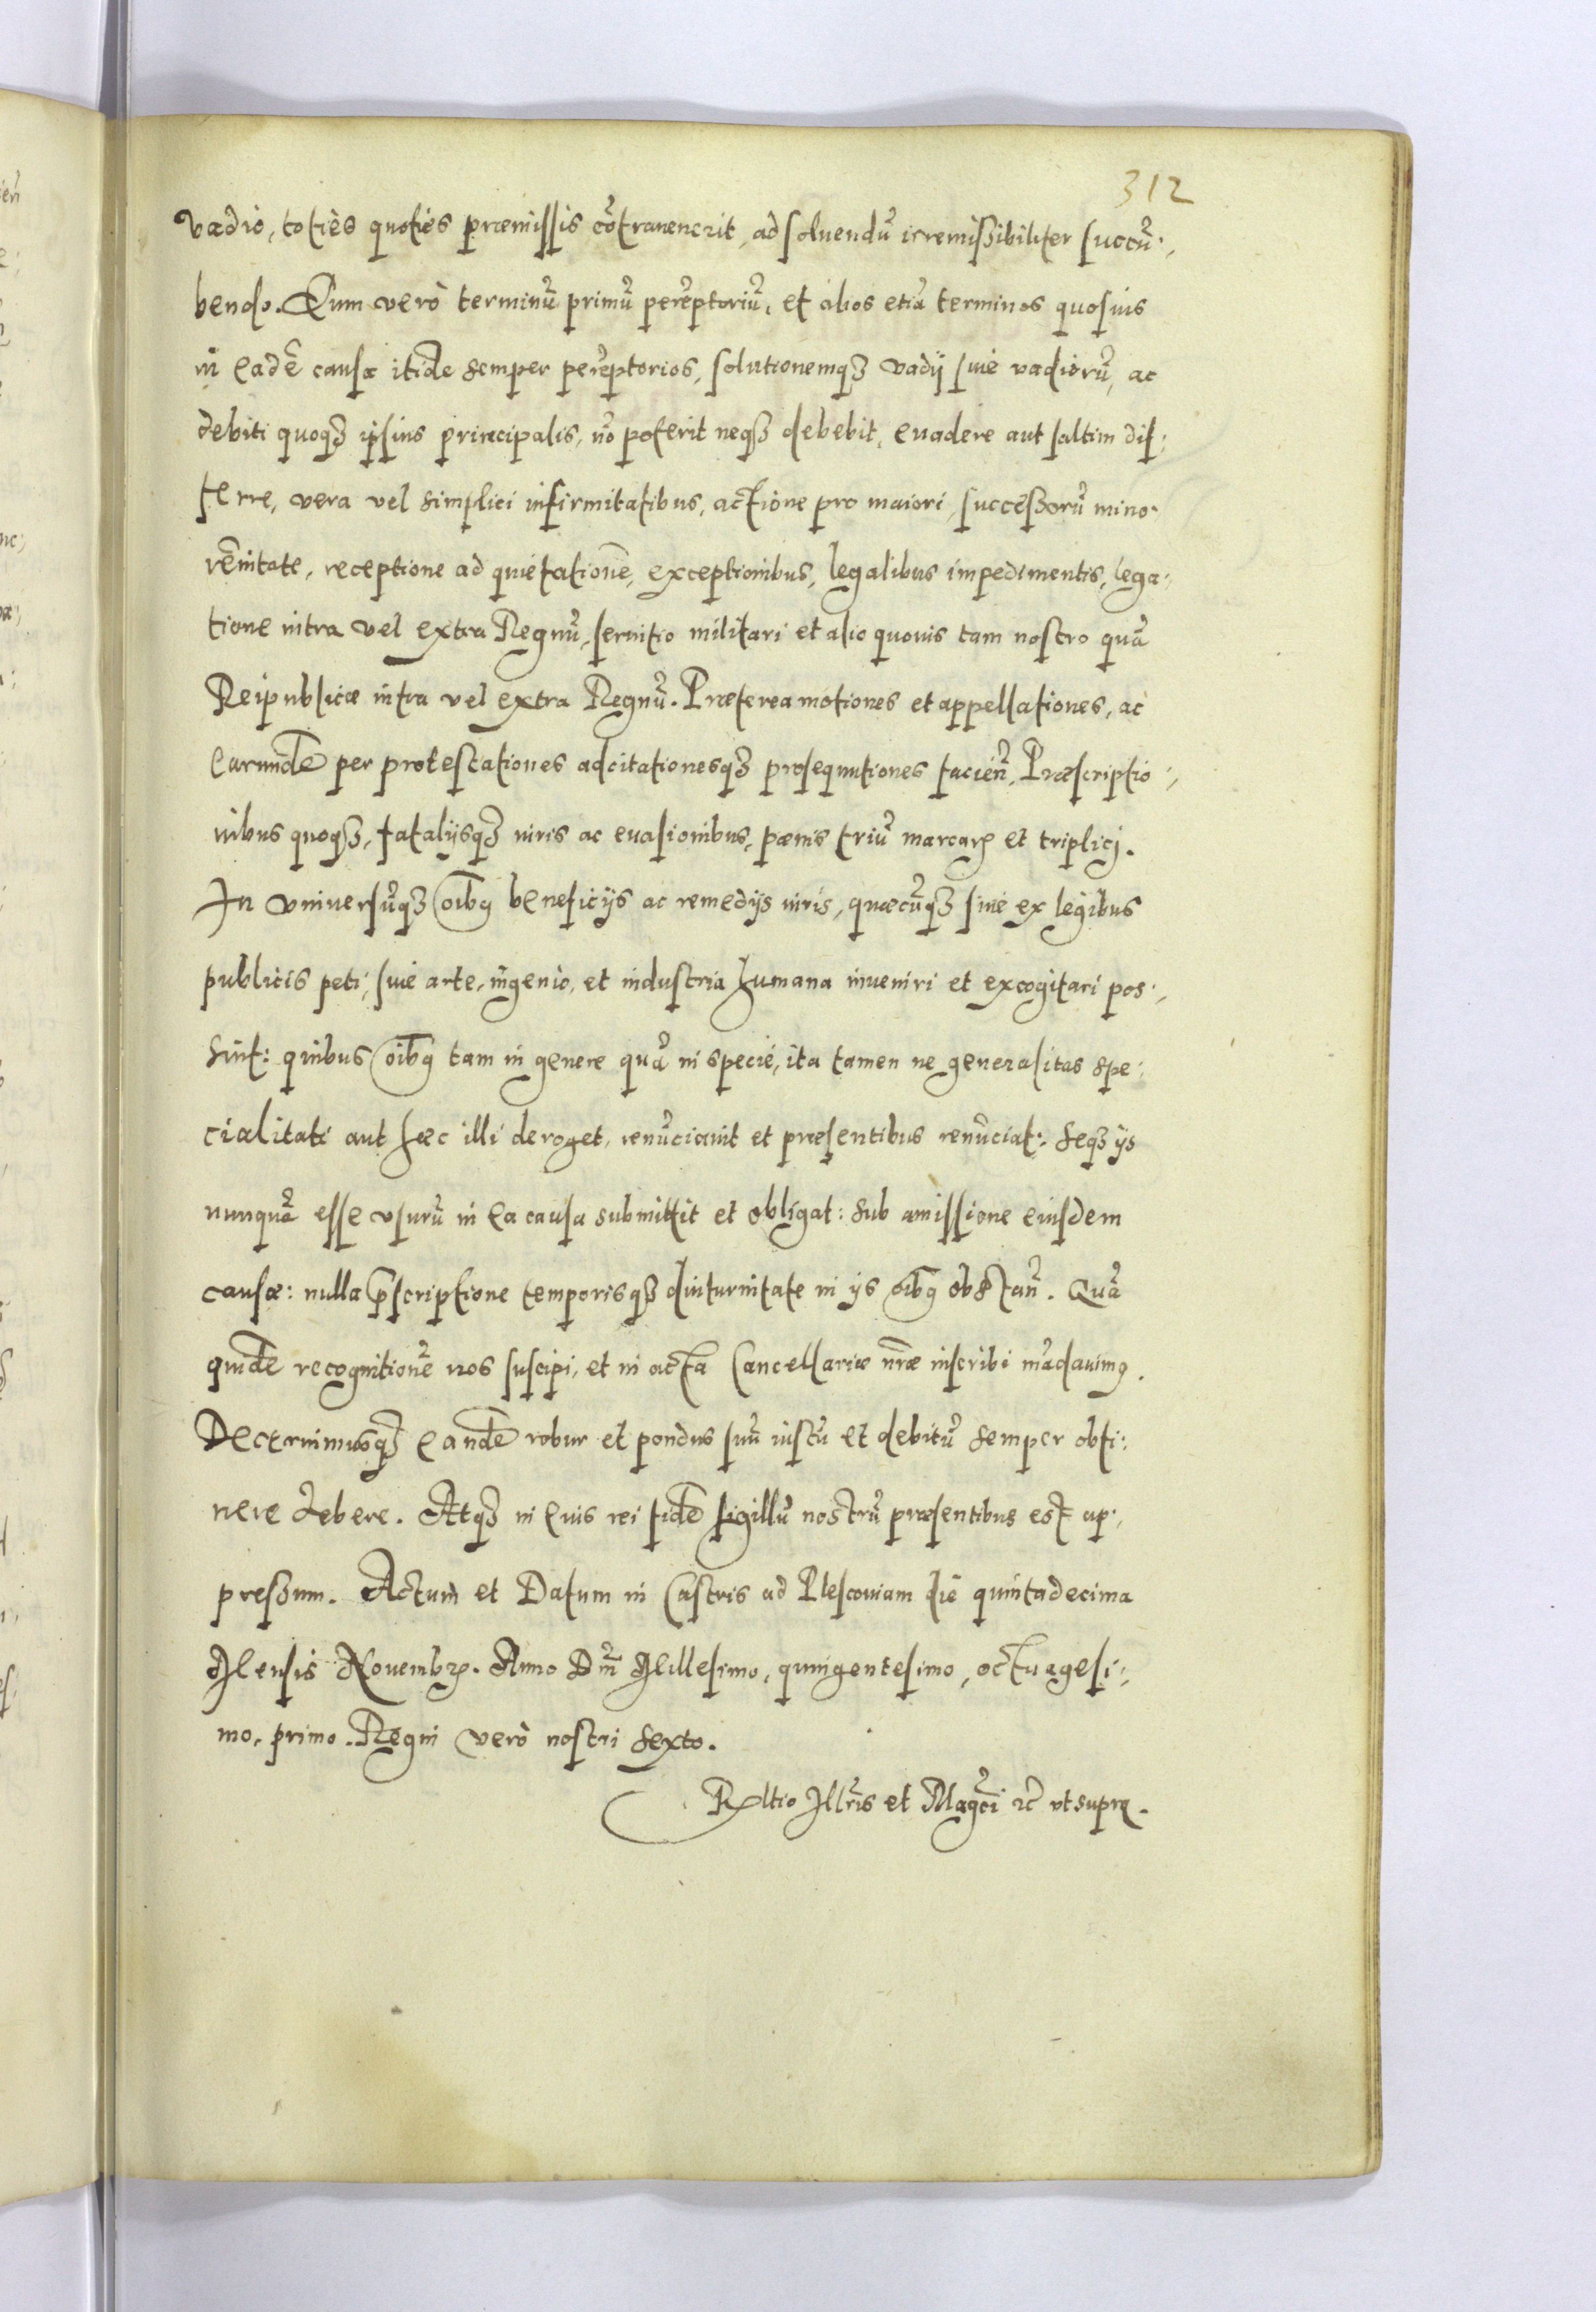 312
vadio, toties quoties præmissis cõtrauenerit, ad soluendũ irremissibiliter succũ:
bendo. Eum verò terminũ primũ perẽptoriũ, et alios etiã terminos quosuis
in eadẽ causa itidẽ semper perẽptorios, solutionemqȝ vadij siue vadiorũ, ac
debiti quoqȝ ipsius principalis, nõ poterit neqȝ debebit, euadere aut saltim dif:
ferre, vera vel simplici infirmitatibus, actione pro maiori, successorũ mino:
rẽnitate, receptione ad quietationẽ, exceptionibus, legalibus impedimentis, lega:
tione intra vel extra Regnũ, seruitio militari et alio quouis tam nostro quã
Reipublicæ intra vel extra Regnũ. Præterea motiones et appellationes, ac
earundẽ per protestationes adcitationesqȝ prosequutiones faciẽn̄, Præscriptio:
nibus quoqȝ, fatalijsqȝ iuris ac euasionibus, pœnis triũ marcarꝝ et triplicj.
In vniuersũqȝ oĩbꝫ beneficijs ac remedijs iuris, quæcũqȝ siue ex legibus
publicis peti, siue arte, ingenio, et industria humana inueniri et excogitari pos:
sint: quibus oĩbꝫ tam in genere quã in specie, ita tamen ne generalitas spe:
cialitati aut hæc illi deroget, renũciauit et præsentibus renũciat: seqȝ ijs
nunquã esse vsurũ in ea causa submittit et obligat: sub amissione eiusdem
causæ: nulla p̃scriptione temporisqȝ diuturnitate in ijs oĩbꝫ obstan̄. Quã
quidẽ recognitionẽ nos suscipi, et in acta Cancellariæ nr̃æ inscribi mãdauimꝫ.
Decernimusqȝ eandẽ robur et pondus suũ iustũ et debitũ semper obti:
nere debere. Atqȝ in euis rei fidẽ sigillũ nostrũ præsentibus est ap:
pressum. Actum et Datum in Castris ad Plescouiam die quintadecima
Mensis Nouembrꝭ. Anno Dñi Millesimo, quingentesimo, octuagesi:
mo, primo. Regni verò nostri sexto.
Rltio Illr̃is et Mag̃ci ꝛc̃ vt supra.